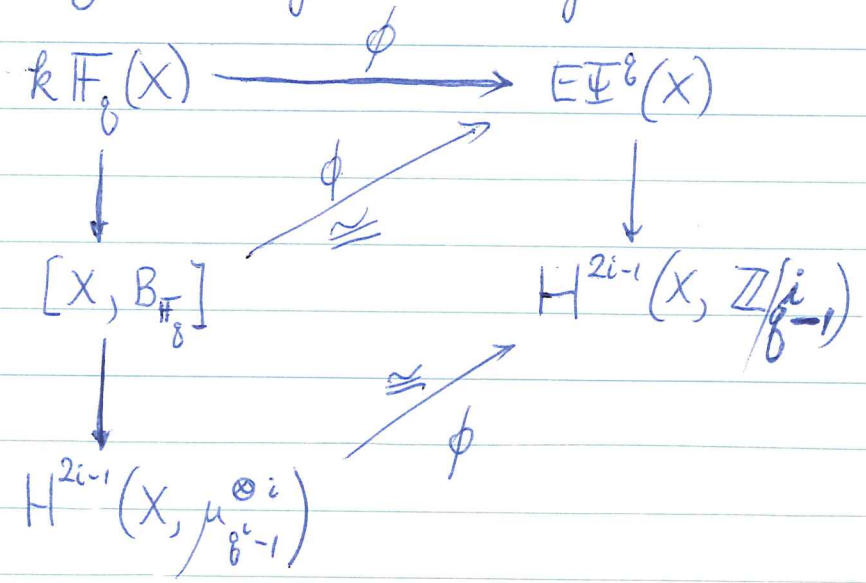 ϕ
k𝔽_q(X) ⟶ EΨ^q(X)
ϕ
≅
[X, B_{𝔽_q}]
H^{2i-1}(X, ℤ/q^i-1)
≅
ϕ
H^{2i-1}(X, μ_{q^i-1}^{⊗i})